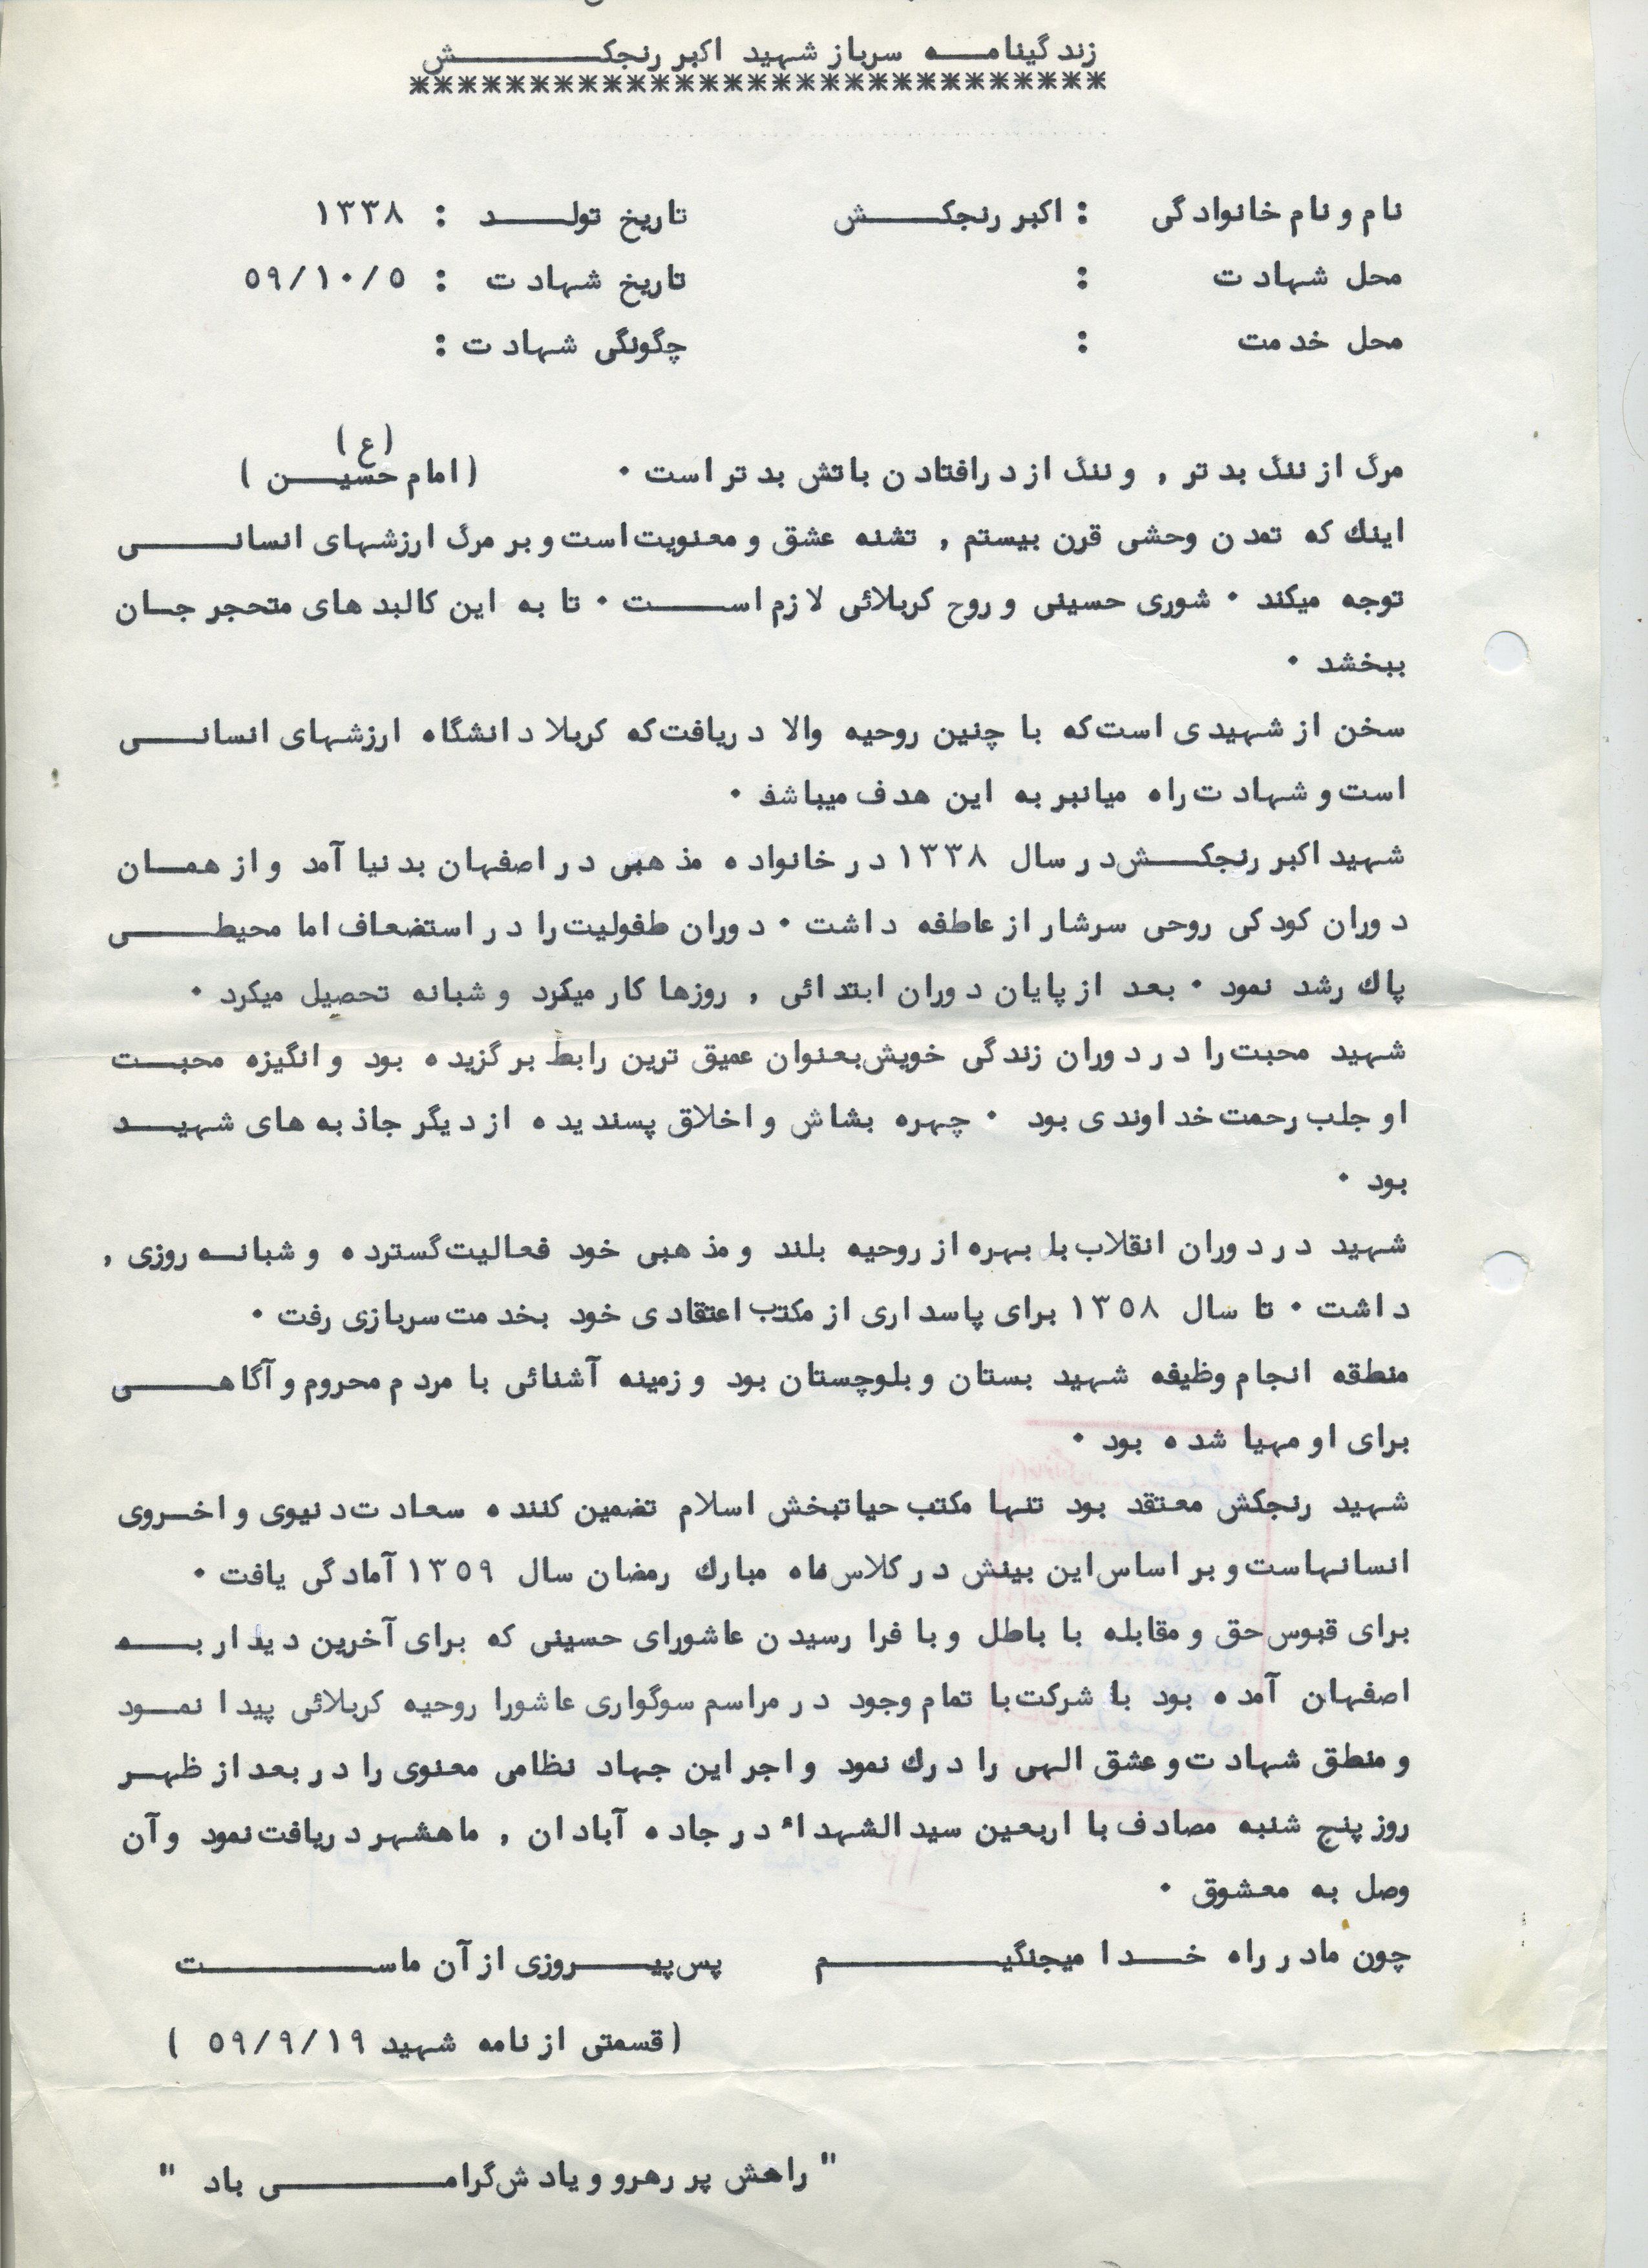 زندگینامه سرباز شهید اکبر رنجکش
*****************************
نام و نام خانوادگی : اکبر رنجکش تاریخ تولد : ۱۳۳۸
محل شهادت : تاریخ شهادت : ۵۹/۱۰/۵
محل خدمت : چگونگی شهادت :
مرگ از ننگ بدتر , و ننگ از درافتادن باتش بدتر است . (امام حسین (ع) )
اینک که تمدن وحشی قرن بیستم , تشنه عشق و معنویت است و بر مرگ ارزشهای انسانی
توجه میکند . شوری حسینی و روح کربلائی لازم است . تا به این کالبدهای متحجر جان
ببخشد .
سخن از شهیدی است که با چنین روحیه والا دریافت که کربلا دانشگاه ارزشهای انسانی
است و شهادت راه میانبر به این هدف میباشد .
شهید اکبر رنجکش در سال ۱۳۳۸ در خانواده مذهبی در اصفهان بدنیا آمد و از همان
دوران کودکی روحی سرشار از عاطفه داشت . دوران طفولیت را در استضعاف اما محیطی
پاک رشد نمود . بعد از پایان دوران ابتدائی , روزها کار میکرد و شبانه تحصیل میکرد .
شهید محبت را در دوران زندگی خویش بعنوان عمیق ترین رابط برگزیده بود و انگیزه محبت
او جلب رحمت خداوندی بود . چهره بشاش و اخلاق پسندیده از دیگر جاذبه های شهید
بود .
شهید در دوران انقلاب با بهره از روحیه بلند و مذهبی خود فعالیت گسترده و شبانه روزی ,
داشت . تا سال ۱۳۵۸ برای پاسداری از مکتب اعتقادی خود بخدمت سربازی رفت .
منطقه انجام وظیفه شهید بستان و بلوچستان بود و زمینه آشنائی با مردم محروم و آگاهی
برای او مهیا شده بود .
شهید رنجکش معتقد بود تنها مکتب حیاتبخش اسلام تضمین کننده سعادت دنیوی و اخروی
انسانهاست و بر اساس این بینش در کلاس ماه مبارک رمضان سال ۱۳۵۹ آمادگی یافت .
برای قبوس حق و مقابله با باطل و با فرا رسیدن عاشورای حسینی که برای آخرین دیدار به
اصفهان آمده بود با شرکت با تمام وجود در مراسم سوگواری عاشورا روحیه کربلائی پیدا نمود
و منطق شهادت و عشق الهی را درک نمود و اجر این جهاد نظامی معنوی را در بعد از ظهر
روز پنج شنبه مصادف با اربعین سید الشهداء در جاده آبادان , ماهشهر دریافت نمود و آن
وصل به معشوق .
چون ما در راه خدا میجنگیم پس پیروزی از آن ماست
(قسمتی از نامه شهید ۵۹/۹/۱۹ )
" راهش پر رهرو و یادش گرامی باد "